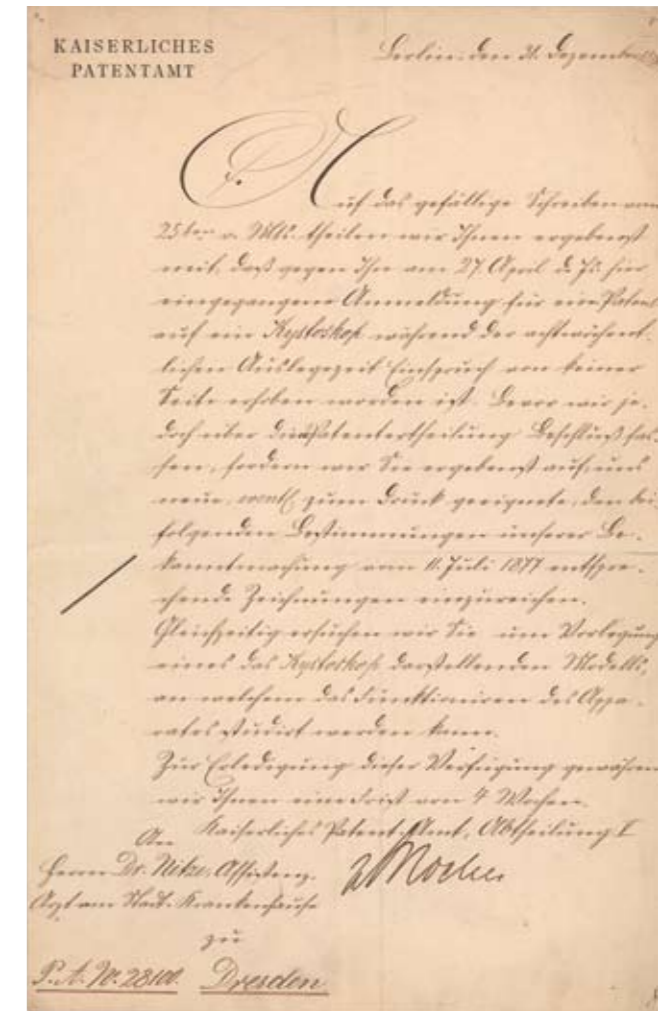 KAISERLICHES
PATENTAMT
Berlin, den 31. Dezember
Auf das gefällige Schreiben vom
25ten v. Mts. theilen wir Ihnen ergebenst
mit, daß gegen Ihre am 27. April d. Js. hier
eingegangene Anmeldung für ein Patent
auf ein Kystoskop während der achtwöchent-
lichen Auslegezeit Einspruch von keiner
Seite erhoben worden ist. Bevor wir je-
doch über die Patentertheilung Beschluß fas-
sen, fordern wir Sie ergebenst auf, uns
neue, eventl. zum Druck geeignete, den bei-
folgenden Bestimmungen unserer Be-
kanntmachung vom 11. Juli 1877 entspre-
chende Zeichnungen einzureichen.
Gleichzeitig ersuchen wir Sie um Vorlegung
eines das Kystoskop darstellenden Modells,
an welchem das Funktioniren des Appa-
rates studirt werden kann.
Zur Erledigung dieser Verfügung gewähren
wir Ihnen eine Frist von 4 Wochen.
Kaiserliches Patent-Amt, Abtheilung I
An
Herrn Dr. Nitze, Assistenz-
Arzt am Stadt-Krankenhause
zu
P. A. No. 28100. Dresden